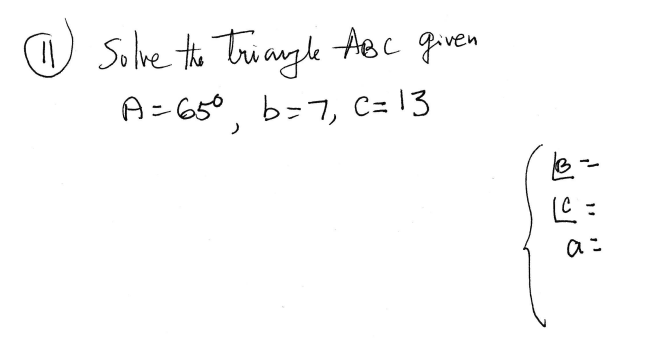 11 Solve the Triangle ABC given
A = 65°, b = 7, c = 13
∠B =
∠C =
a =